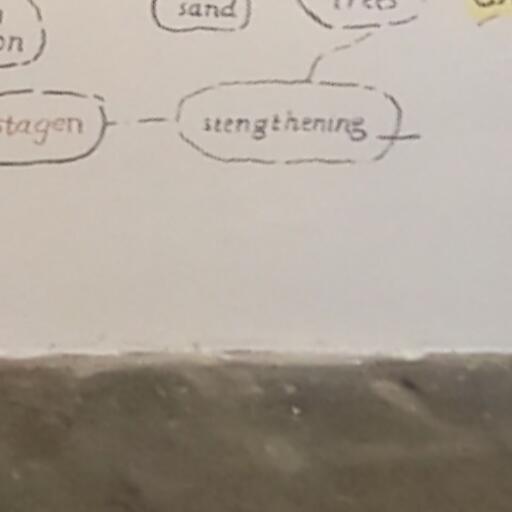 sand
trees
on
stagen
stengthening